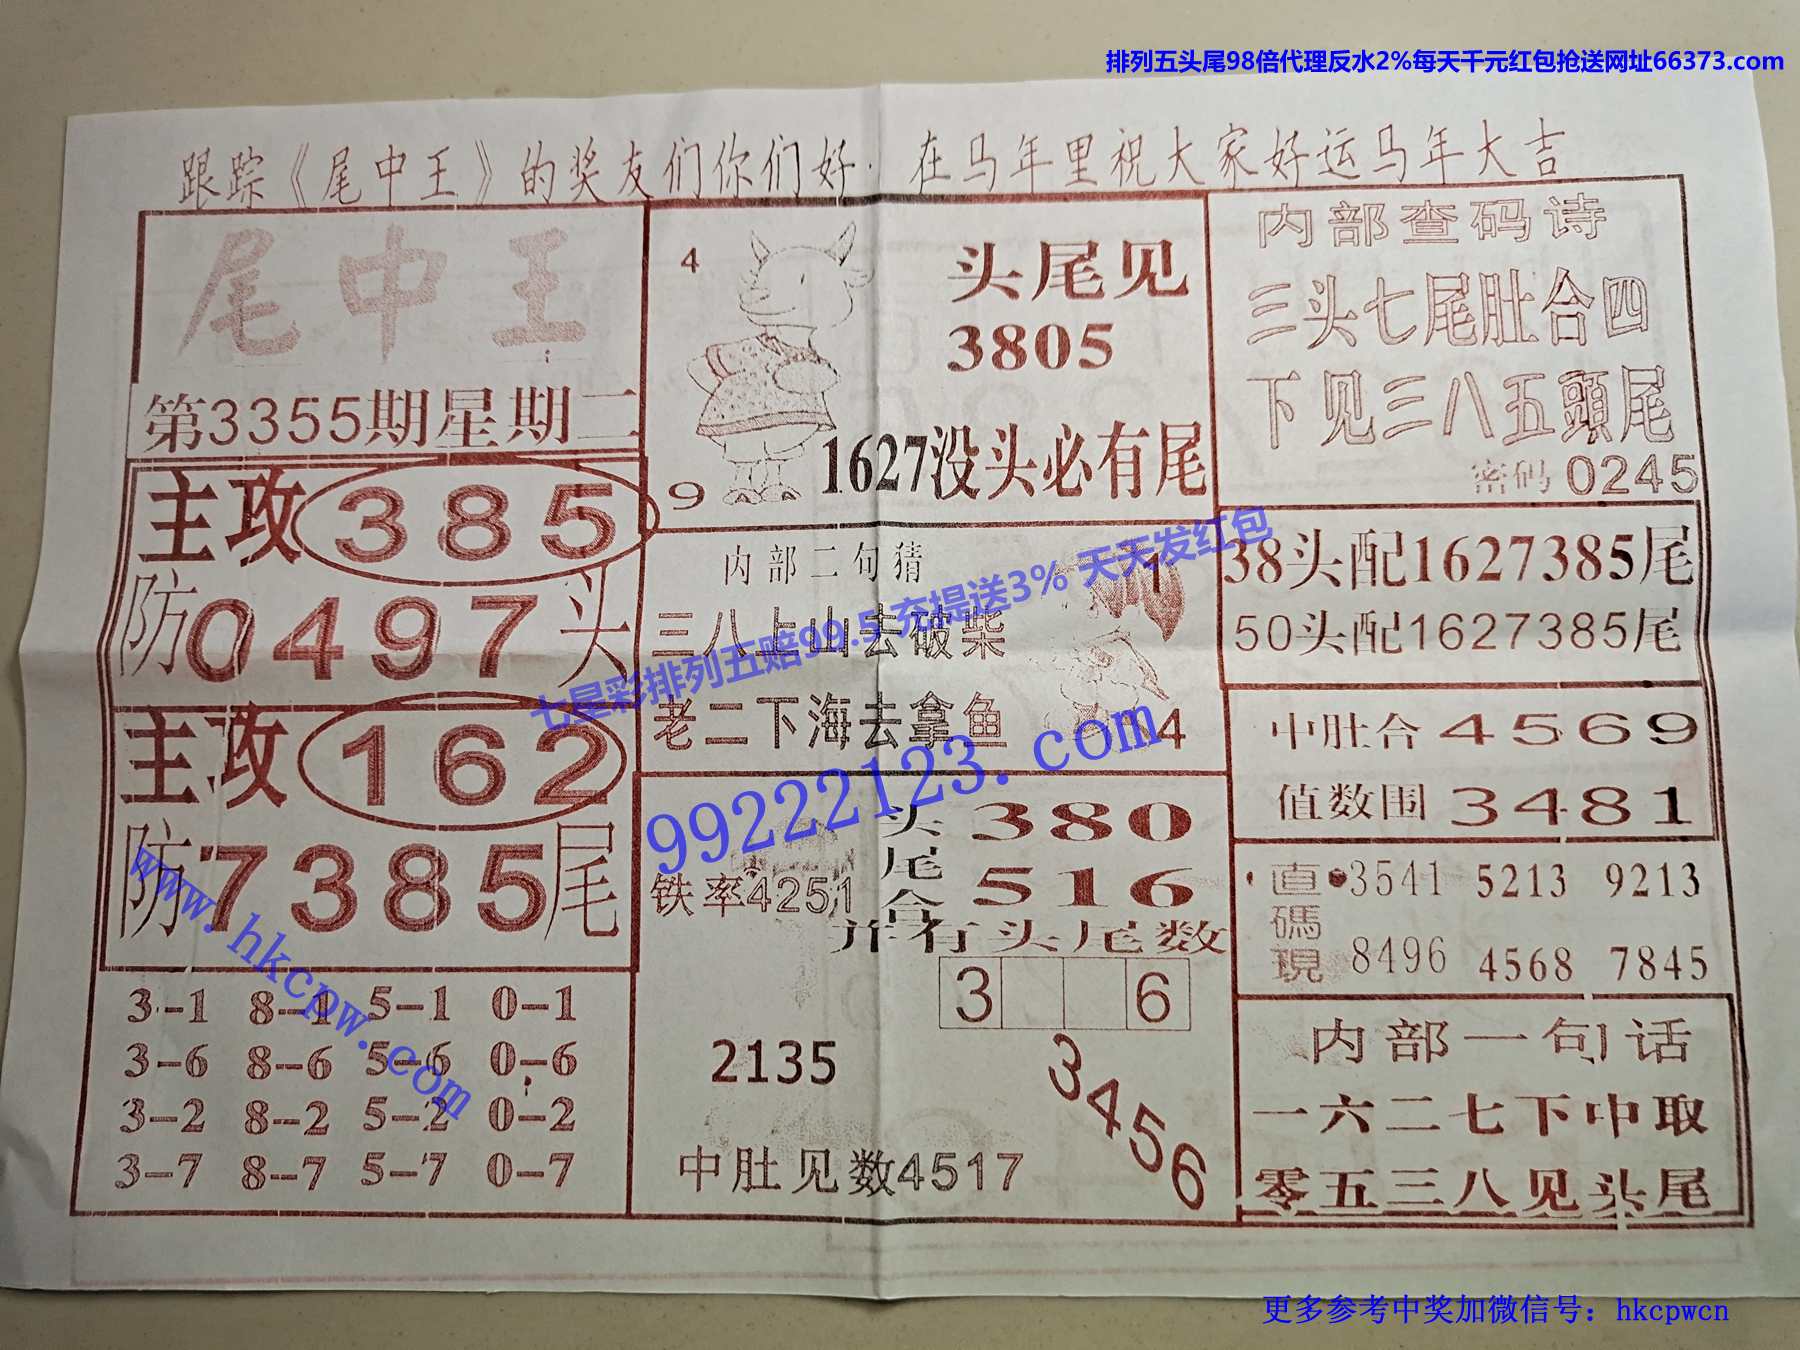 排列五头尾98倍代理反水2%每天千元红包抢送网址66373.com
跟踪《尾中王》的奖友们你们好·在马年里祝大家好运马年大吉
尾中王
第3355期星期二
主攻385
防0497头
主攻162
防7385尾
3--1 8--1 5--1 0--1
3--6 8--6 5--6 0--6
3--2 8--2 5--2 0--2
3--7 8--7 5--7 0--7
4
头尾见
3805
1627没头必有尾
9
内部二句猜
1
三八上山去破柴
老二下海去拿鱼
4
头尾合
380
516
铁率4251
并有头尾数
3 6
2135
3456
中肚见数4517
内部查码诗
三头七尾肚合四
下见三八五頭尾
密码0245
38头配1627385尾
50头配1627385尾
中肚合4569
值数围3481
直碼現
3541 5213 9213
8496 4568 7845
内部一句话
一六二七下中取
零五三八见头尾
七星彩排列五赔99.5 充提送3% 天天发红包
99222123.com
www.hkcpw.com
更多参考中奖加微信号：hkcpwcn